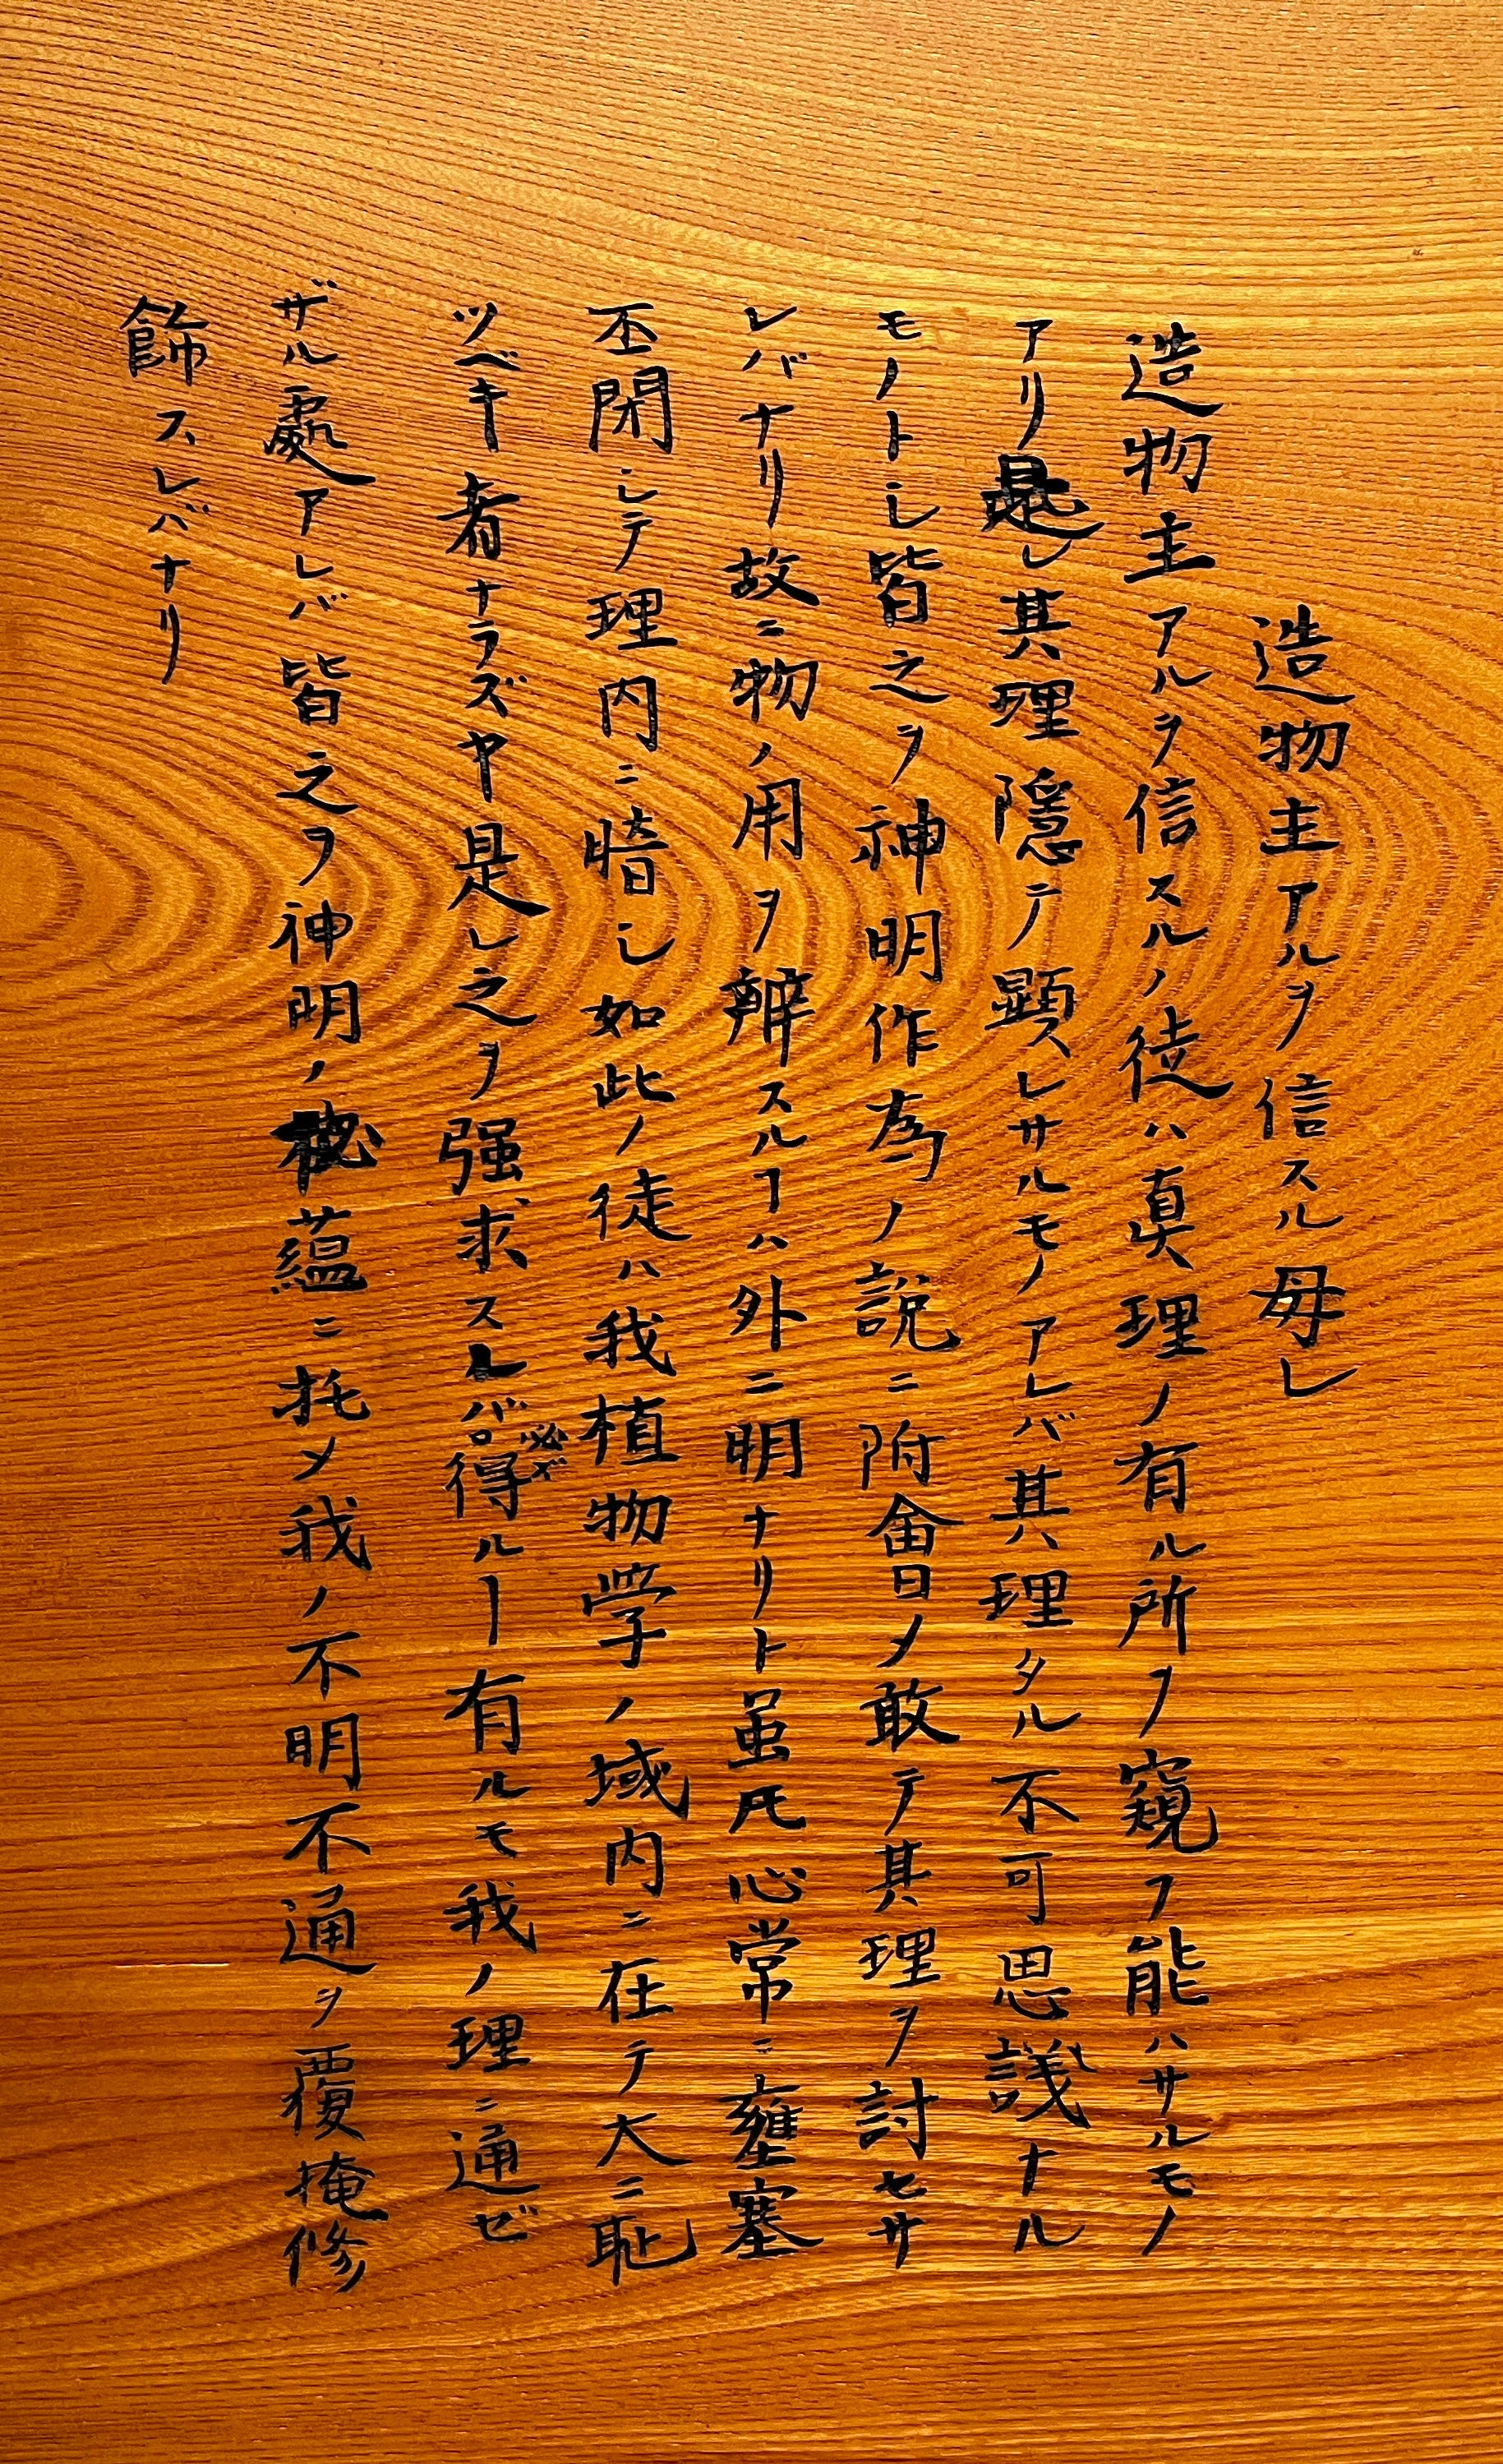 造物主アルヲ信スル毋レ
造物主アルヲ信スルノ徒ハ眞理ノ有ル所ヲ窺フ能ハサルモノ
アリ是レ其理隱テ顕レサルモノアレバ其理タル不可思議ナル
モノトし皆之ヲ神明作為ノ説ニ附會メ敢テ其理ヲ討セサ
レバナリ故ニ物ノ用ヲ辨スルヿハ外ニ明ナリト虽𪜈心常ニ壅塞
丕閉シテ理内ニ暗し如此ノ徒ハ我植物学ノ域内ニ在テ大ニ恥
ツベキ者ナラズヤ是レ之ヲ强求スレバ必ズ得ルヿ有ルモ我ノ理ニ通ゼ
ザル處アレバ皆之ヲ神明ノ秘蘊ニ托メ我ノ不明不通ヲ覆掩修
飾スレバナリ